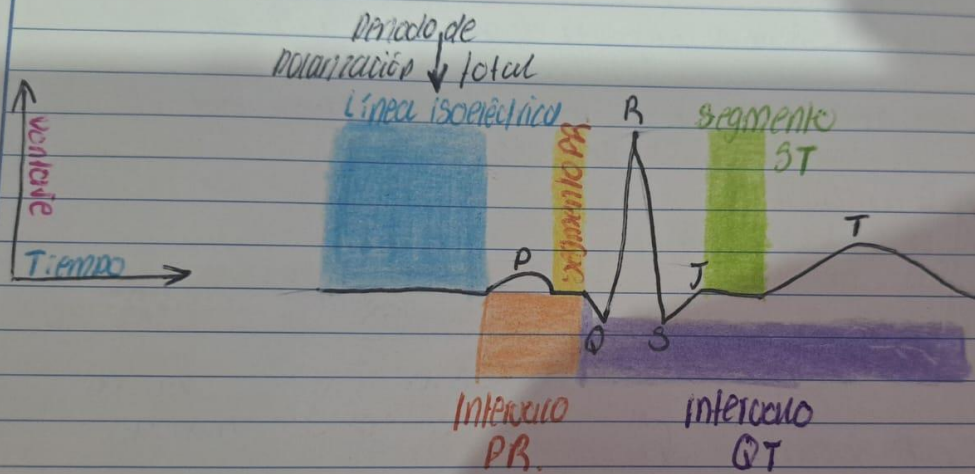 Periodo de
Polarización total
Línea isoeléctrica
Voltaje
Tiempo
Segmento PR
P
Q
R
S
J
Segmento
ST
T
Intervalo
PR.
Intervalo
QT